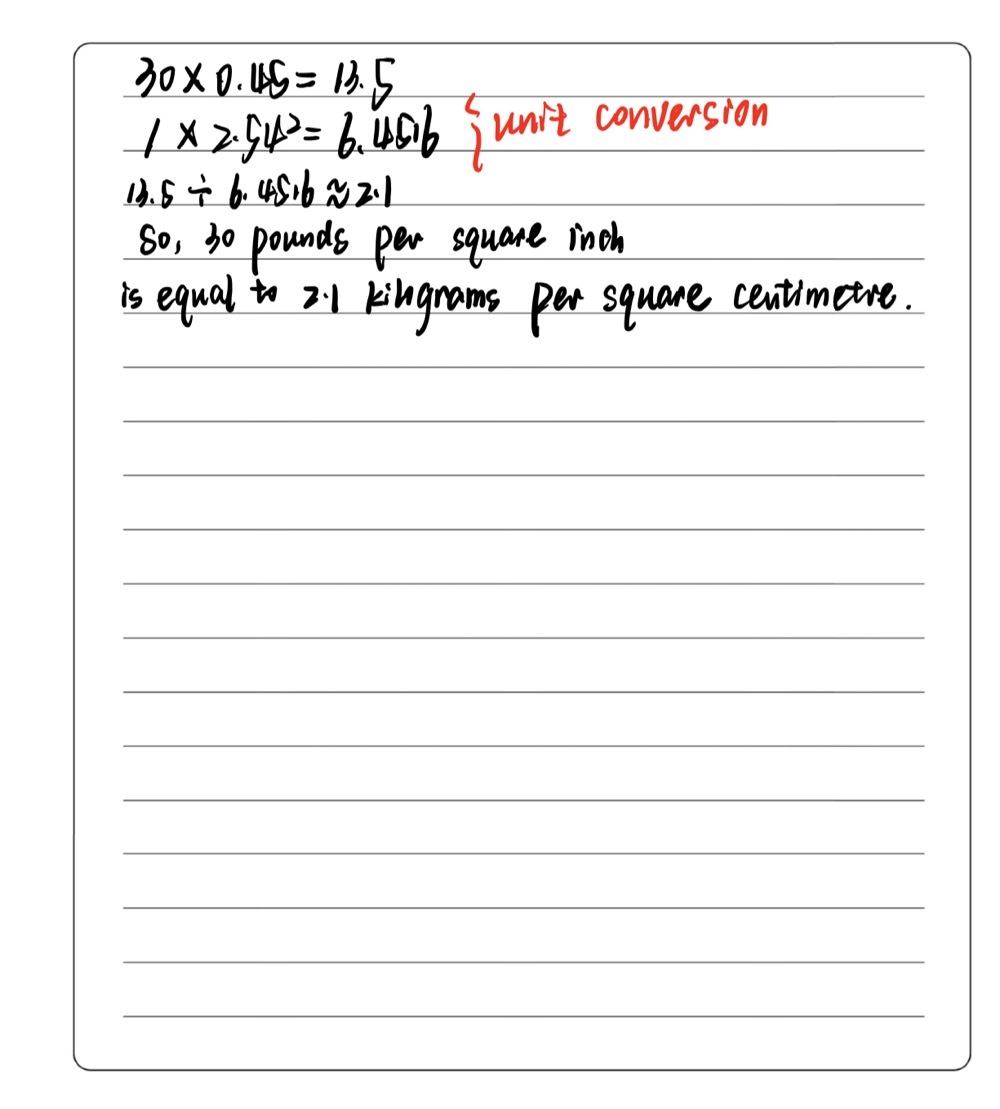 30 × 0.45 = 13.5
1 × 2.54² = 6.4516
{ unit conversion
13.5 ÷ 6.4516 ≈ 2.1
So, 30 pounds per square inch
is equal to 2.1 kilograms per square centimetre.